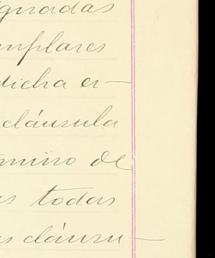 gnadas
emplares
dicha es-
cláusula
amino de
as todas
as cláusu-